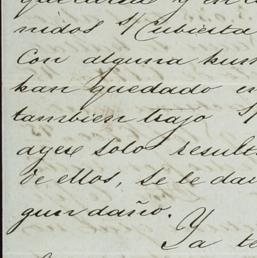 nidos S/ Cubierta
Con alguna hum
han quedado en
tambien trajo S/
ayer solo result
de ellos, se le da
gun daño.
Ya te